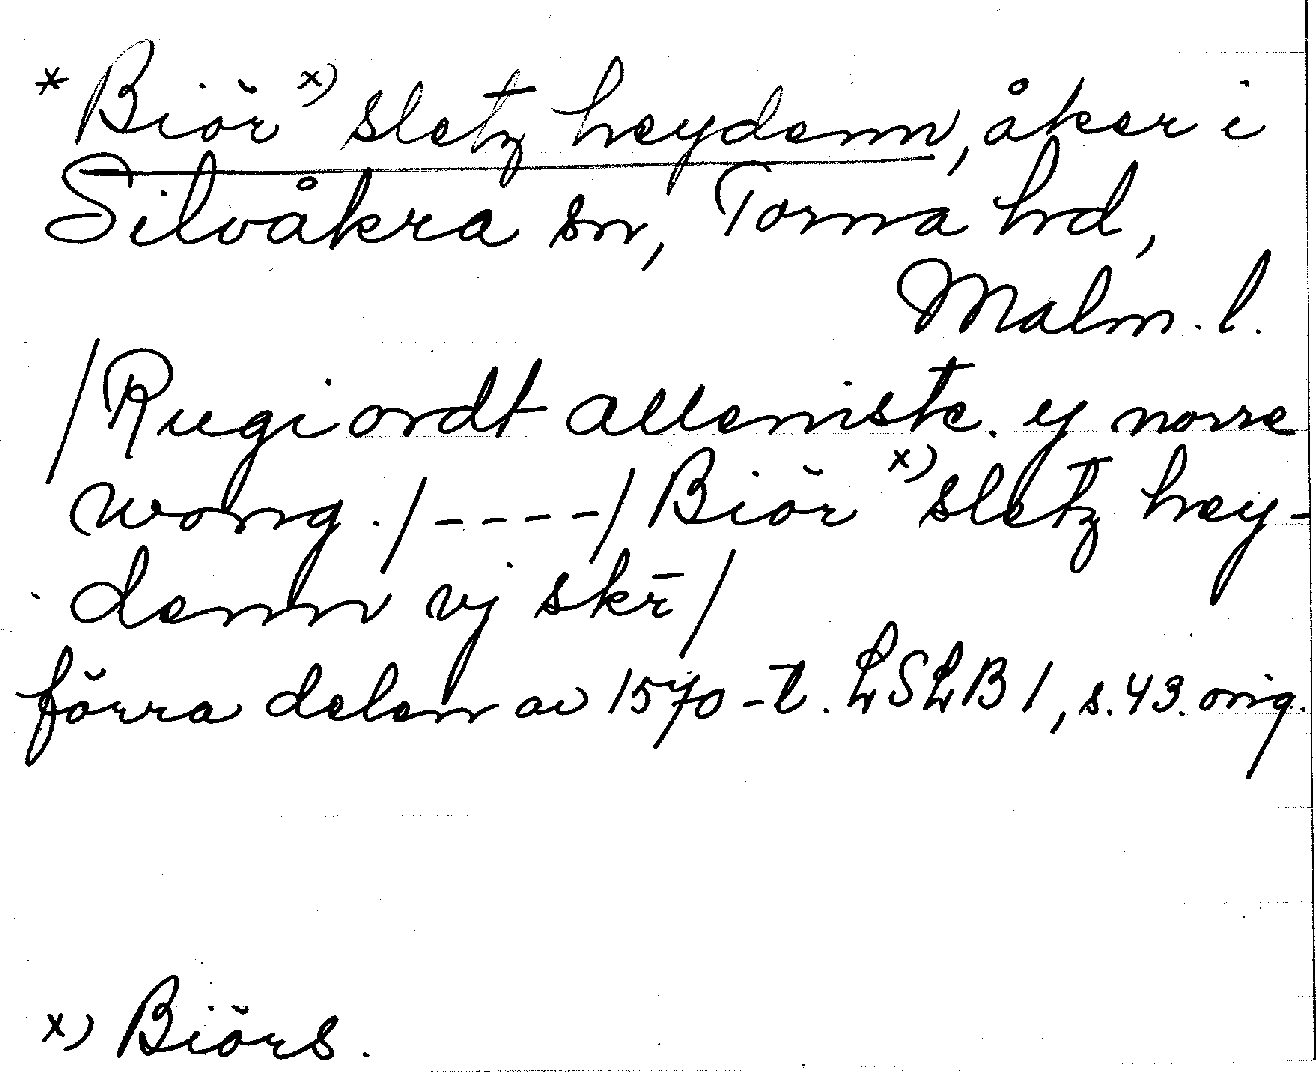 * Biör x) sletz heydenn, åker i
Silvåkra sn, Torna hd,
Malm. l.
/Rugiordt allemste. y norre
wong./----/Biör x) sletz hey-
denn vj skr̄/
förra delen av 1570-t. LSLB 1, s. 43. orig.
x) Biörs.